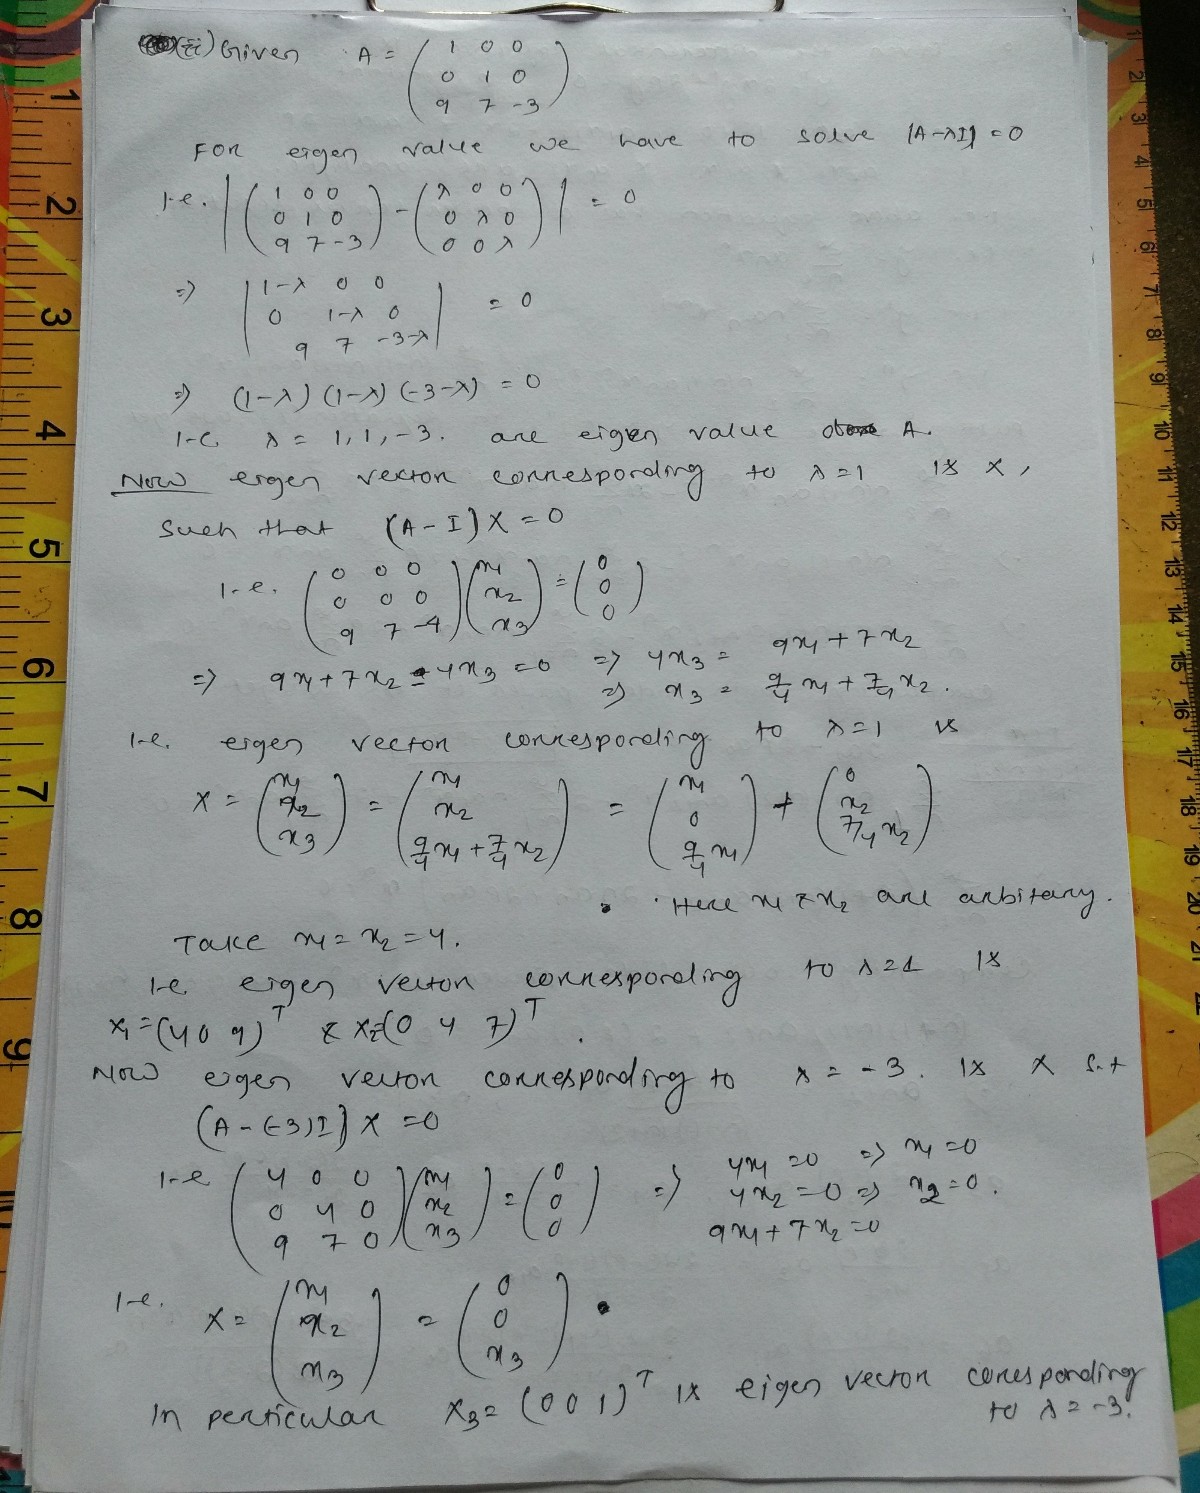 (ii) Given A = ( 1 0 0
0 1 0
9 7 -3 )
For eigen value we have to solve |A-λI| = 0
i.e. | ( 1 0 0
0 1 0
9 7 -3 ) - ( λ 0 0
0 λ 0
0 0 λ ) | = 0
=> | 1-λ 0 0
0 1-λ 0
9 7 -3-λ | = 0
=> (1-λ) (1-λ) (-3-λ) = 0
i.e. λ = 1, 1, -3. are eigen value A.
Now eigen vector corresponding to λ=1 is X,
such that (A - I) X = 0
i.e. ( 0 0 0
0 0 0
9 7 -4 ) ( x1
x2
x3 ) = ( 0
0
0 )
=> 9x1 + 7x2 - 4x3 = 0 => 4x3 = 9x1 + 7x2
=> x3 = 9/4 x1 + 7/4 x2.
i.e. eigen vector corresponding to λ=1 is
X = ( x1
x2
x3 ) = ( x1
x2
9/4 x1 + 7/4 x2 ) = ( x1
0
9/4 x1 ) + ( 0
x2
7/4 x2 )
Here x1 & x2 are arbitary.
Take x1 = x2 = 4.
i.e eigen vector corresponding to λ=1 is
X1 = (4 0 9)^T & X2 = (0 4 7)^T.
Now eigen vector corresponding to λ = -3. is X s.t
(A - (-3)I) X = 0
i.e ( 4 0 0
0 4 0
9 7 0 ) ( x1
x2
x3 ) = ( 0
0
0 ) => 4x1 = 0 => x1 = 0
4x2 = 0 => x2 = 0.
9x1 + 7x2 = 0
i.e. X = ( x1
x2
x3 ) = ( 0
0
x3 ).
In perticular X3 = (0 0 1)^T is eigen vector corresponding
to λ = -3.
1
2
3
4
5
6
7
8
9
1
2
3
4
5
6
7
8
9
10
11
12
13
14
15
16
17
18
19
20
21